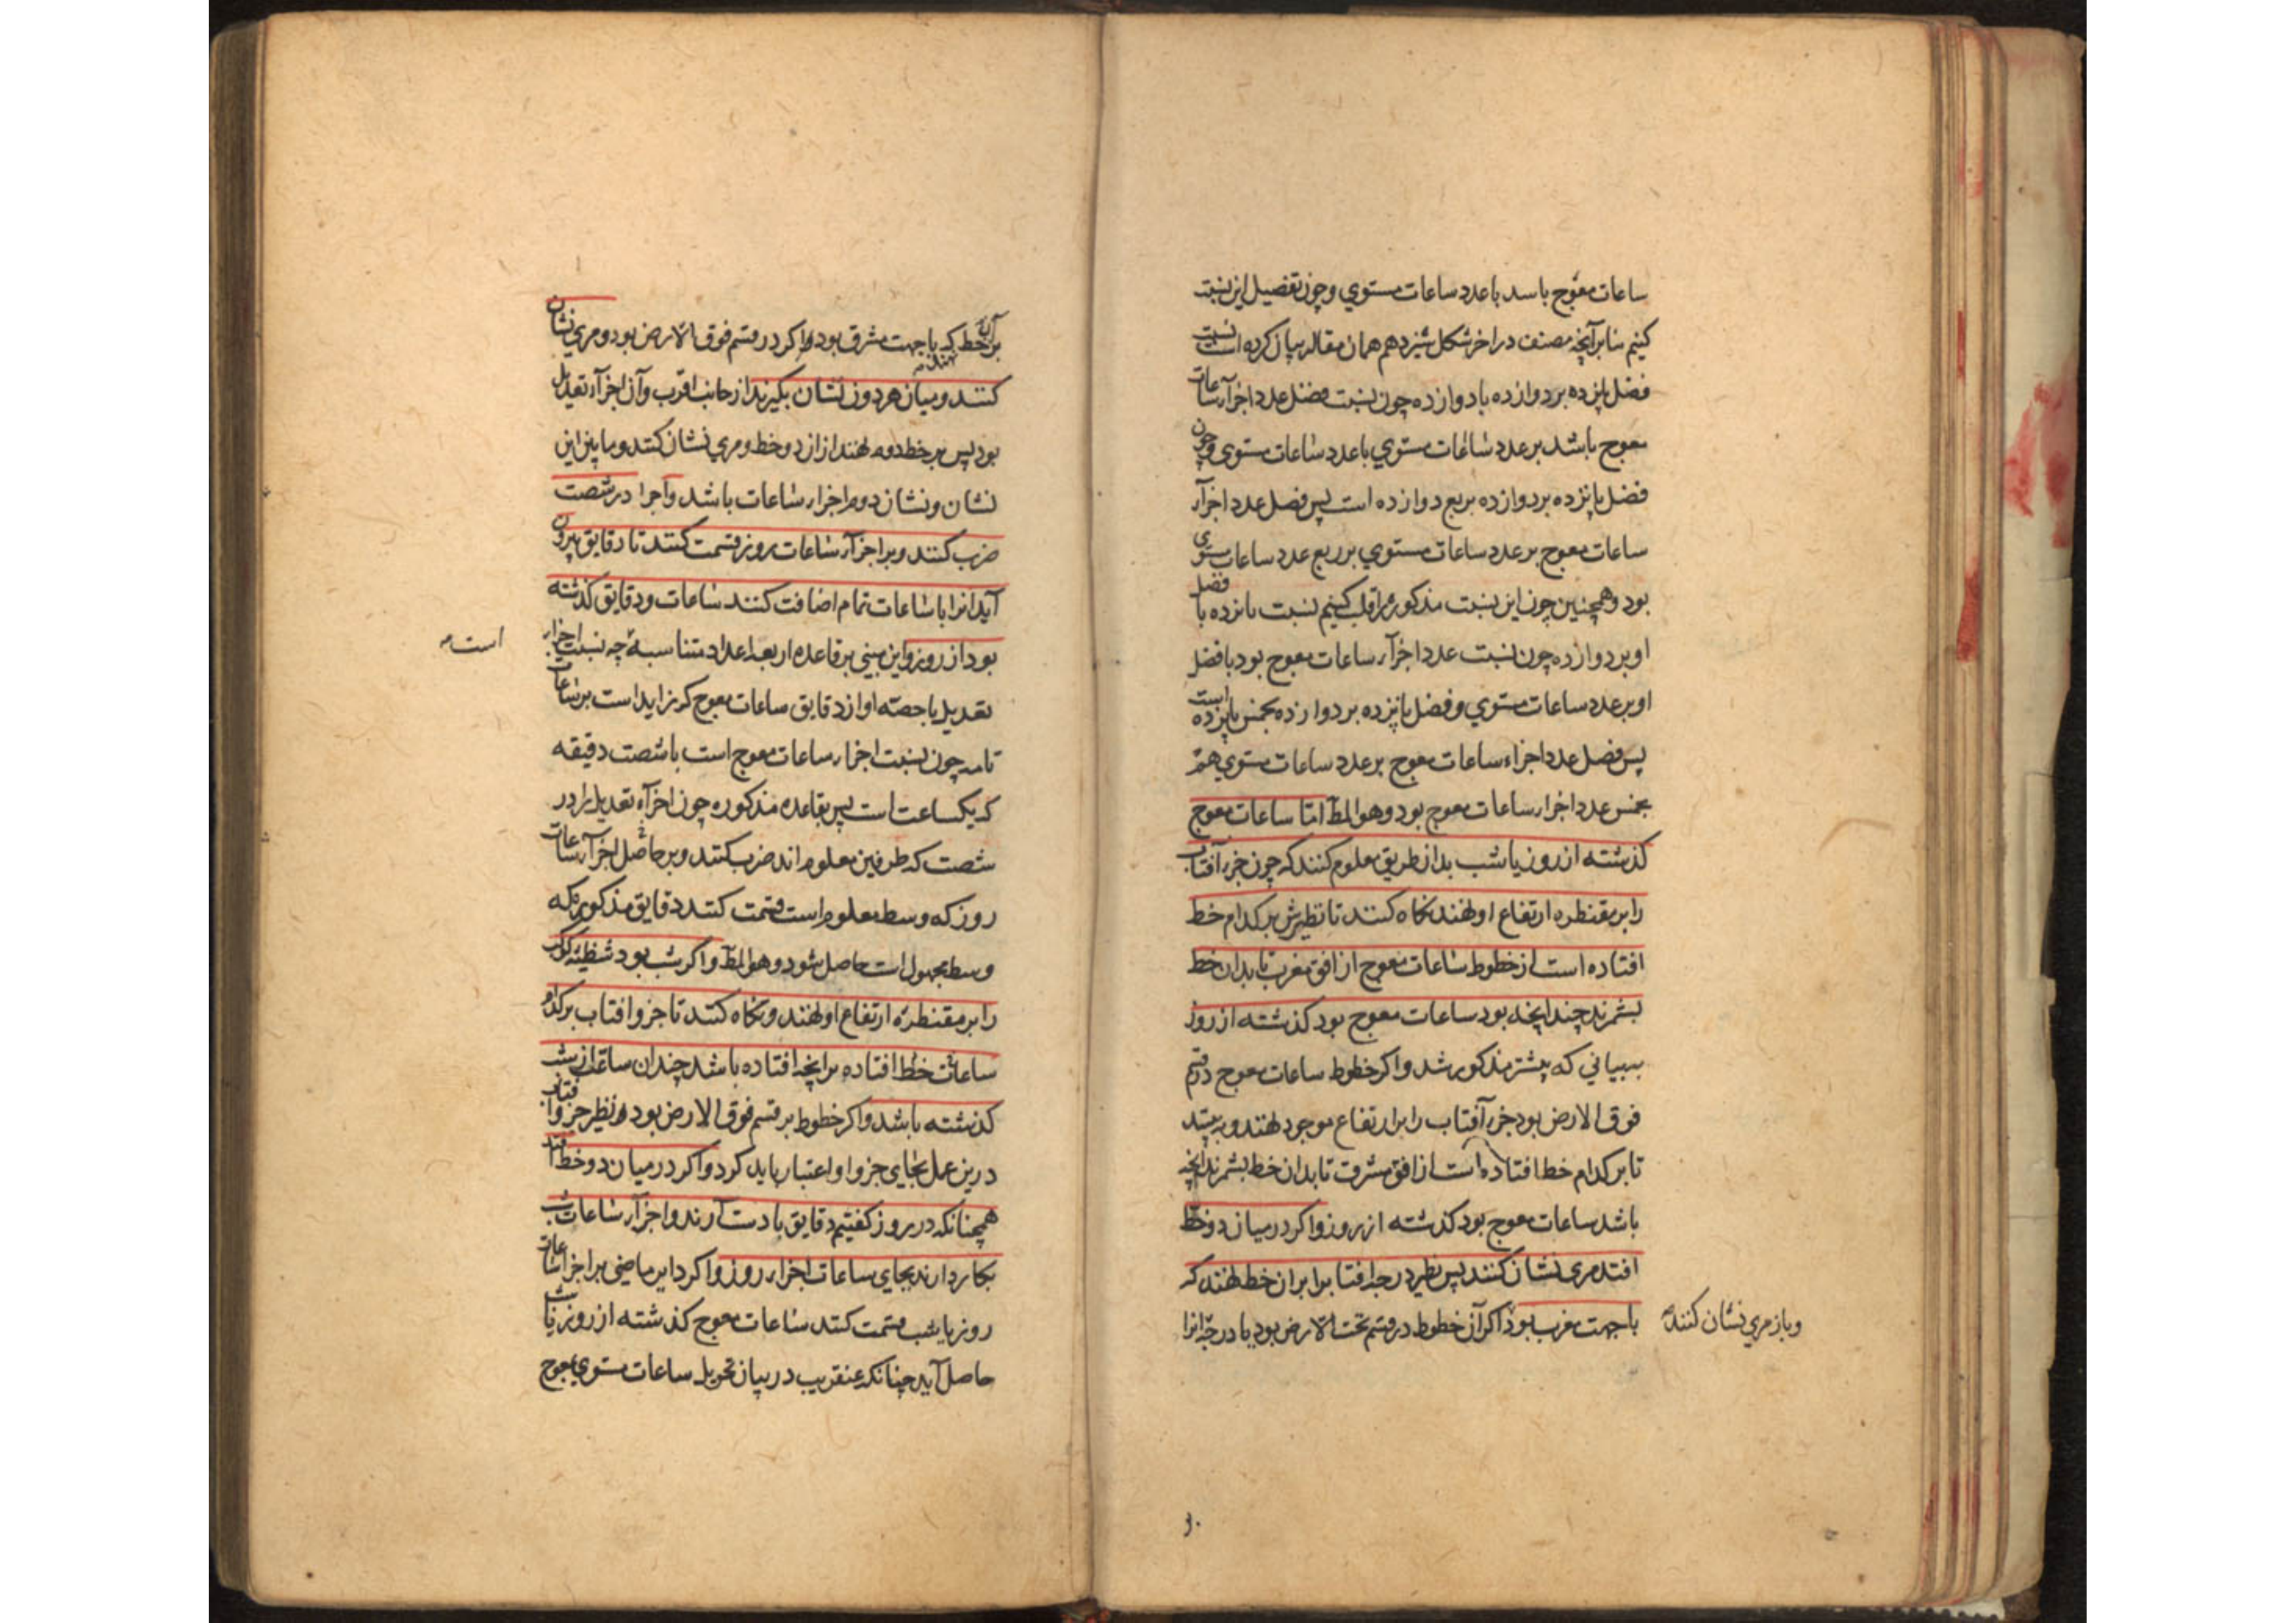 ساعات معوج باسد با عدد ساعات مستوی و چون تفضیل این نسبت
کنیم بنابر آنچه مصنف در اخر شکل شیزدهم همان مقاله بیان کرده است نسبت
فضل پانزده بر دوازده با دوازده چون نسبت فضل عدد اجزآء ساعات
معوج باشد بر عدد ساعات مستوی با عدد ساعات مستوی و چون
فضل پانزده بر دوازده بربع دوازده است پس فضل عدد اجزآء
ساعات معوج بر عدد ساعات مستوی بر ربع عدد ساعات مستوی
بود و همچنین چون این نسبت مذکوره را قلب کنیم نسبت پانزده با فضل
او بر دوازده چون نسبت عدد اجزآء ساعات معوج بود با فضل
او بر عدد ساعات مستوی و فضل پانزده بر دوازده بخمس پانزده است
پس فضل عدد اجزاء ساعات معوج بر عدد ساعات مستوی هم
بخمس عدد اجزاء ساعات معوج بود وهو المط اما ساعات معوج
کذشته از روز یا شب بدان طریق معلوم کنند که چون جزء آفتاب
را بر مقنطره ارتفاع او نهند نکاه کنند تا نظیرش بر کدام خط
افتاده است از خطوط ساعات معوج از افق مغرب تا بدان خط
بشمرند چند انچه بود ساعات معوج بود کذشته از روز
ببیانی که پیشتر مذکور شد و اکر خطوط ساعات معوج در قسم
فوق الارض بود جزء آفتاب را بر ارتفاع موجود نهند و به بینند
تا بر کدام خط افتاده است از افق مشرق تا بدان خط بشمرند انچه
باشد ساعات معوج بود کذشته از روز و اکر در میان دو خط
افتد مری نشان کنند پس نظیر درجه افتاب را بر ان خط نهند که
با جهت مغرب بود اکر آن خطوط در قسم تحت الارض بود یا درجه انرا
و باز مری نشان کنند
بر آن خط که با جهت مشرق بود اکر در قسم فوق الارض بود و مری نشان
نهند
کنند و میان هر دو نشان بکیرند از جانب اقرب و آن اجزآء تعدیل
بود پس بر خط دوم نهند از ان دو خط و مری نشان کنند و ما بین این
نشان و نشان دوم اجزاء ساعات باشد و اجزا در شصت
ضرب کنند و بر اجزآء ساعات روز قسمت کنند تا دقایق بیرون
آید انرا با ساعات تمام اضافت کنند ساعات و دقایق کذشته
بود از روز و این مبنی بر قاعده اربعه اعداد متناسبه چه نسبت اجزاء
است
تعدیل یا حصه او از دقایق ساعات معوج که زاید است بر ساعات
تامه چون نسبت اجزاء ساعات معوج است با شصت دقیقه
که یکساعت است پس بقاعده مذکوره چون اجزآء تعدیل را در
شصت که طرفین معلوم اند ضرب کنند و بر حاصل اجزآء ساعات
روز که وسط معلوم است قسمت کنند دقایق مذکوره که
وسط مجهول است حاصل شود وهو المط و اکر شب بود شظیه کوکب
را بر مقنطره ارتفاع او نهند و نکاه کنند تا جزو افتاب بر کدام
ساعات خط افتاده بر انچه افتاده باشد چندان ساعت از شب
کذشته باشد و اکر خطوط بر قسم فوق الارض بود نظیر جزو افتاب
درین عمل بجای جزو او اعتبار باید کرد و اکر در میان دو خط افتد
همچنانکه در روز کفتیم دقایق با دست آرند و اجزآء ساعات شب
بکار دارند بجای ساعات اجزاء روز و اکر دایر ماضی بر اجزا ساعات
روز یا شب قسمت کنند ساعات معوج کذشته از روز یا شب
حاصل آید چنانکه عنقریب در بیان تحویل ساعات مستوی بمعوج